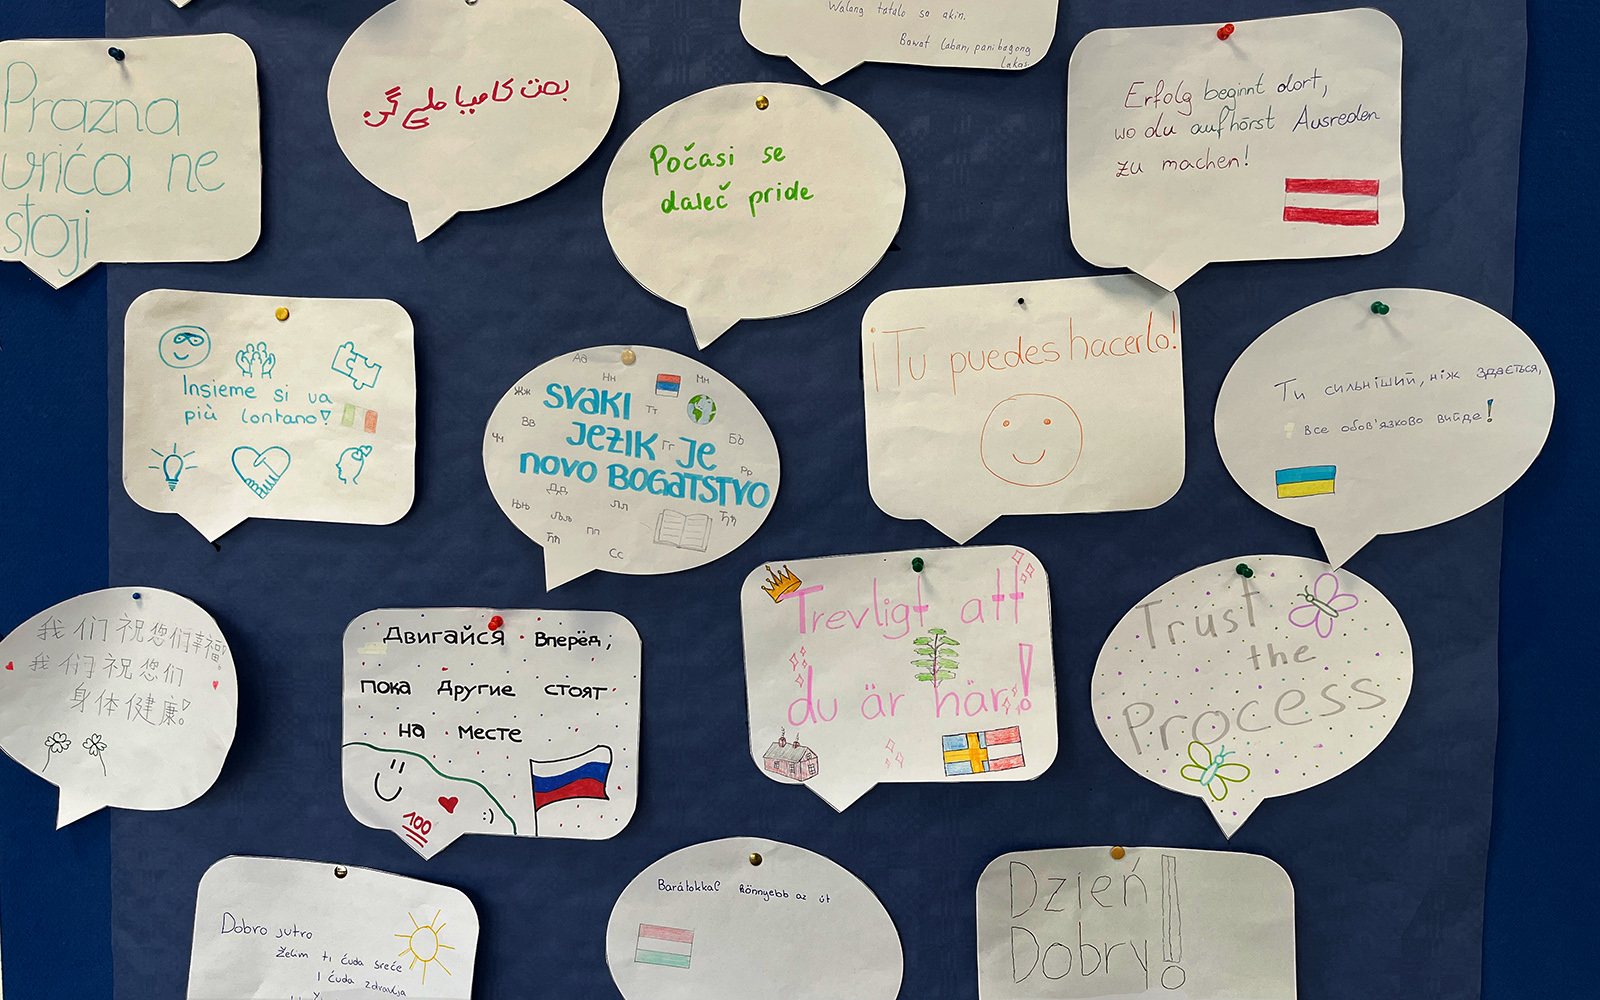 Walong tatalo so akin.
Bawat laban, panibagong
Lakas
Prazna
vrića ne
stoji
Počasi se
daleč pride
Erfolg beginnt dort,
wo du aufhörst Ausreden
zu machen!
Insieme si va
più lontano!
Аа
Нн
Жж
Тт
Вв
Бб
Чч
Гг
Рр
SVAKI
JEZIK JE
NOVO BOGATSTVO
Дд
Њњ
Љљ
Лл
Ђђ
Пп
Ћћ
Сс
¡Tu puedes hacerlo!
Ти сильніший, ніж здається,
все обов'язково вийде!
我们祝您们幸福!
我们祝您们
身体健康!
Двигайся вперёд;
пока другие стоят
на месте
100
:)
Trevligt att
du är här!
Trust
the
Process
Dobro jutro
Želim ti čuda sreće
I čuda zdravlja
Barátokkal könnyebb az út
Dzień
Dobry!